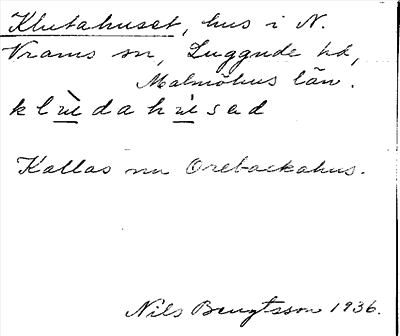 Klutahuset, hus i N.
Vrams sn, Luggude hd,
Malmöhus län.
Kallas nu Orebackahus.
Nils Bengtsson 1936.